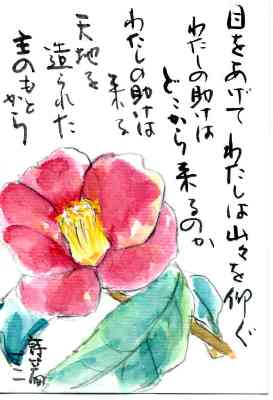 目をあげて わたしは山々を仰ぐ
わたしの助けは
どこから来るのか
わたしの助けは
来る
天地を
造られた
主のもと
から
詩篇